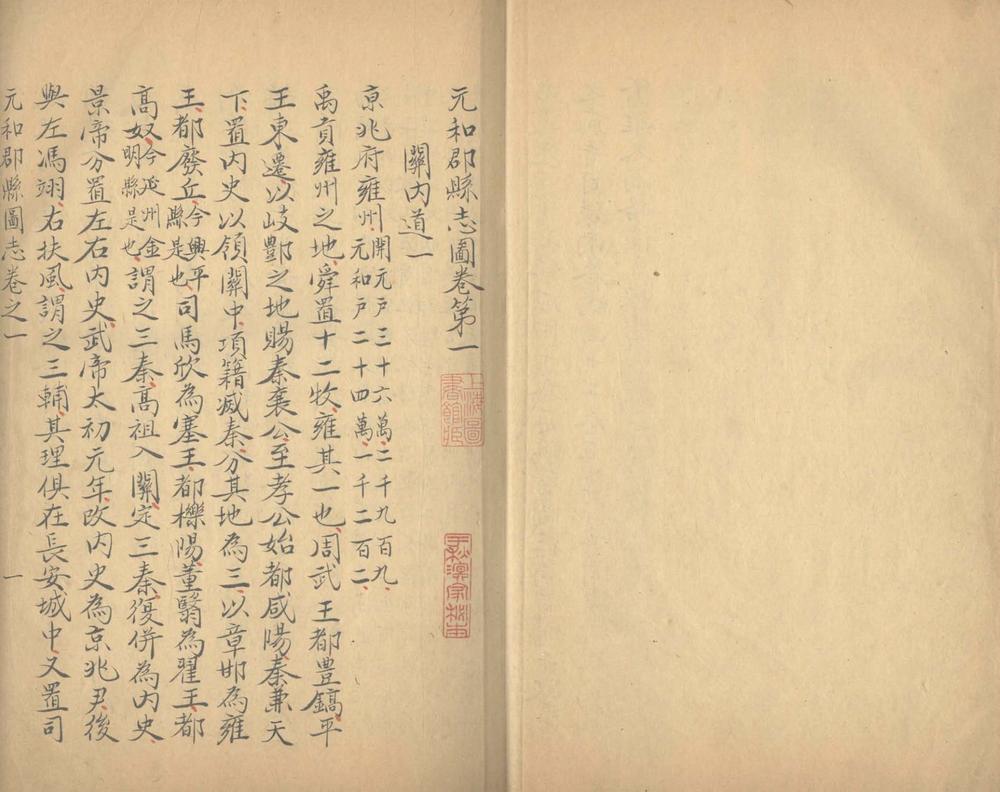 元和郡縣志圖卷第一
關內道一
京兆府雍州開元戶三十六萬二千九百九元和戶二十四萬一千二百二
禹貢雍州之地舜置十二牧雍其一也周武王都豊鎬平
王東遷以岐酆之地賜秦襄公至孝公始都咸陽秦兼天
下置內史以領關中項籍滅秦分其地為三以章邯為雍
王都廢丘今興平縣是也司馬欣為塞王都櫟陽董翳為翟王都
高奴今延州金明縣是也謂之三秦高祖入關定三秦復併為內史
景帝分置左右內史武帝太初元年改內史為京兆尹後
與左馮翊右扶風謂之三輔其理俱在長安城中又置司
元和郡縣圖志卷之一 一
上海圖書館藏